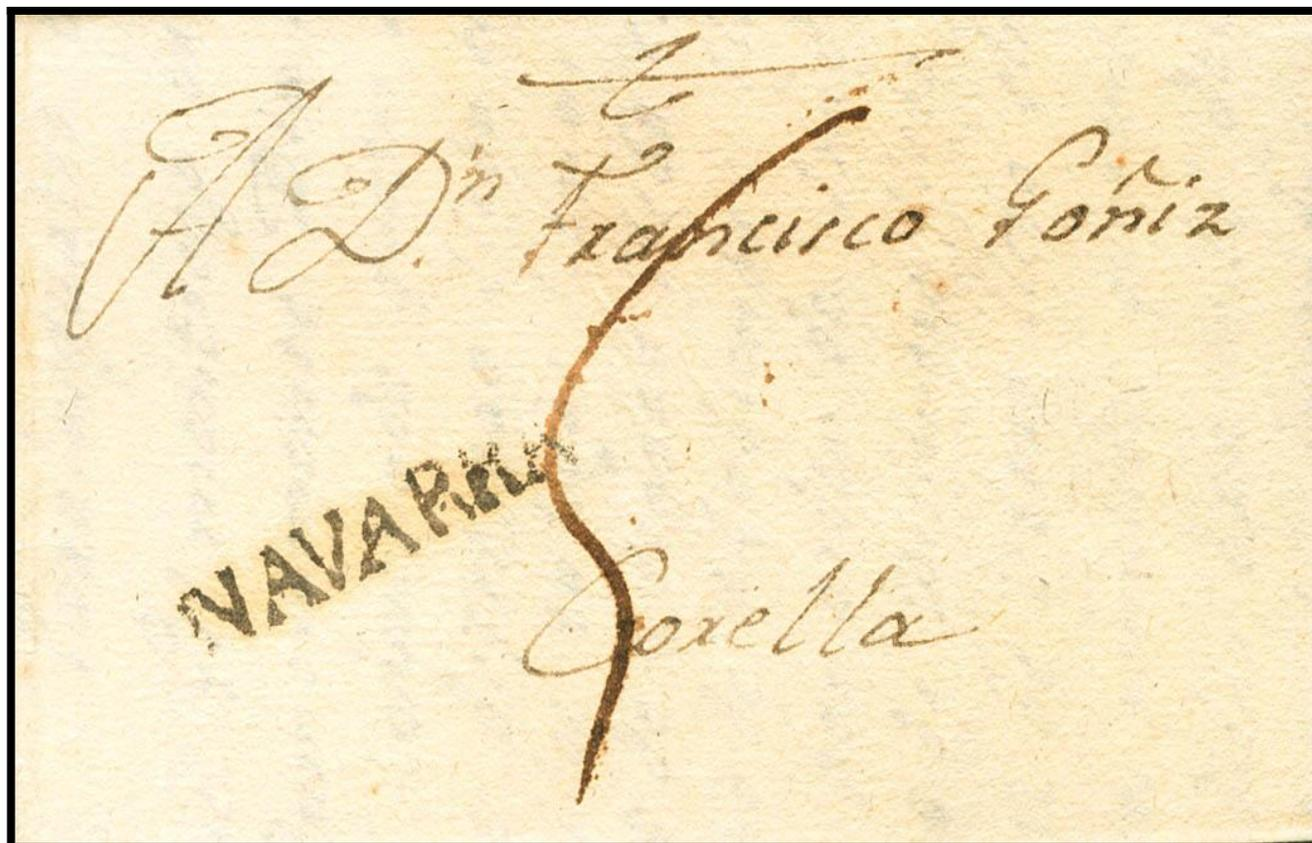 A Dn. Francisco Goñiz
NAVARRA
Corella